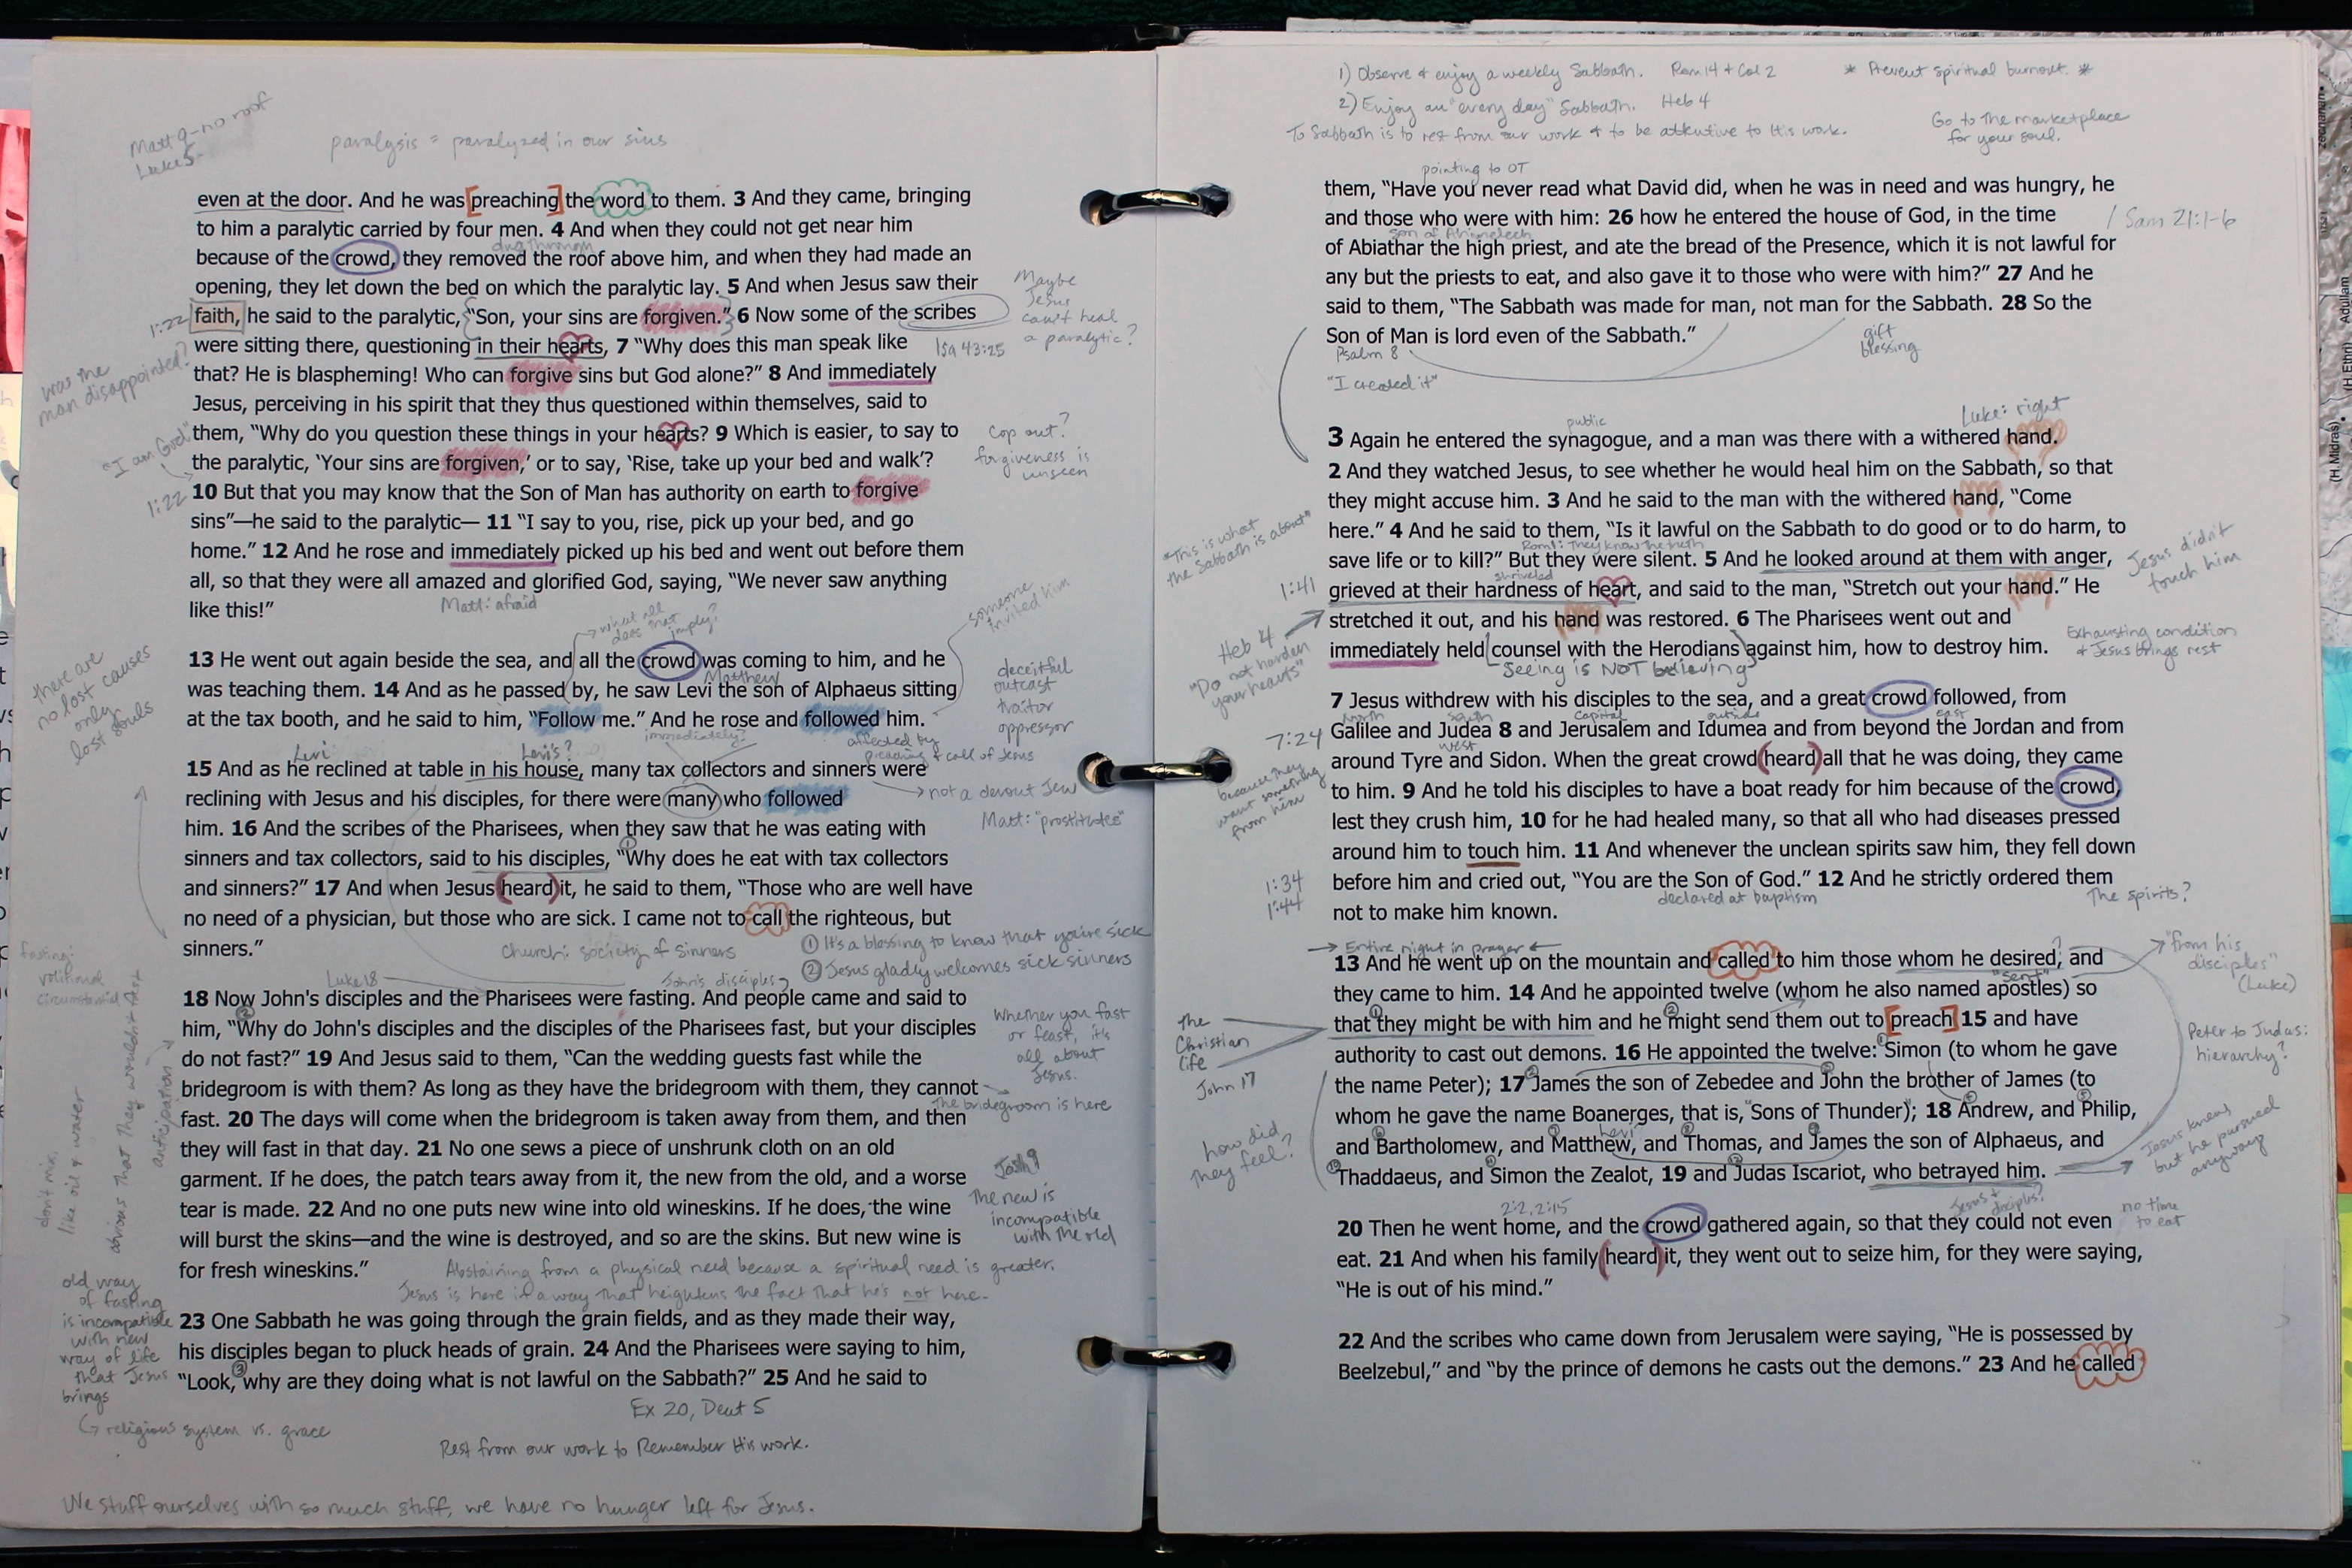 Matt 9 - no roof
Luke 5-
paralysis = paralyzed in our sins
even at the door. And he was [preaching] the word to them. 3 And they came, bringing
to him a paralytic carried by four men. 4 And when they could not get near him
dug through
because of the crowd, they removed the roof above him, and when they had made an
opening, they let down the bed on which the paralytic lay. 5 And when Jesus saw their
faith, he said to the paralytic, {“Son, your sins are forgiven.”} 6 Now some of the scribes
were sitting there, questioning in their hearts, 7 “Why does this man speak like
that? He is blaspheming! Who can forgive sins but God alone?” 8 And immediately
Jesus, perceiving in his spirit that they thus questioned within themselves, said to
them, “Why do you question these things in your hearts? 9 Which is easier, to say to
the paralytic, ‘Your sins are forgiven,’ or to say, ‘Rise, take up your bed and walk’?
10 But that you may know that the Son of Man has authority on earth to forgive
sins”—he said to the paralytic— 11 “I say to you, rise, pick up your bed, and go
home.” 12 And he rose and immediately picked up his bed and went out before them
all, so that they were all amazed and glorified God, saying, “We never saw anything
like this!”
Matt: afraid
1:22
was the
man disappointed?
"I am God"
1:22
Maybe
Jesus
can't heal
a paralytic?
Isa 43:25
Cop out?
forgiveness is
unseen
what all
does that
imply?
someone
invited him
13 He went out again beside the sea, and all the crowd was coming to him, and he
Matthew
was teaching them. 14 And as he passed by, he saw Levi the son of Alphaeus sitting
at the tax booth, and he said to him, “Follow me.” And he rose and followed him.
immediately?
there are
no lost causes
only
lost souls
deceitful
outcast
traitor
oppressor
affected by
preaching & call of Jesus
Levi
Levi's?
15 And as he reclined at table in his house, many tax collectors and sinners were
reclining with Jesus and his disciples, for there were many who followed
him. 16 And the scribes of the Pharisees, when they saw that he was eating with
①
sinners and tax collectors, said to his disciples, “Why does he eat with tax collectors
and sinners?” 17 And when Jesus (heard) it, he said to them, “Those who are well have
no need of a physician, but those who are sick. I came not to call the righteous, but
sinners.”
not a devout Jew
Matt: "prostitutes"
Church: society of sinners
① It's a blessing to know that you're sick
② Jesus gladly welcomes sick sinners
Luke 18
John's disciples
18 Now John's disciples and the Pharisees were fasting. And people came and said to
②
him, “Why do John's disciples and the disciples of the Pharisees fast, but your disciples
do not fast?” 19 And Jesus said to them, “Can the wedding guests fast while the
bridegroom is with them? As long as they have the bridegroom with them, they cannot
fast. 20 The days will come when the bridegroom is taken away from them, and then
they will fast in that day. 21 No one sews a piece of unshrunk cloth on an old
garment. If he does, the patch tears away from it, the new from the old, and a worse
tear is made. 22 And no one puts new wine into old wineskins. If he does, the wine
will burst the skins—and the wine is destroyed, and so are the skins. But new wine is
for fresh wineskins.”
fasting:
volitional
circumstantial
obvious that they wouldn't fast
anticipation
don't mix,
like oil & water
Whether you fast
or feast, it's
all about
Jesus.
The bridegroom is here
Josh 9
The new is
incompatible
with the old
Abstaining from a physical need because a spiritual need is greater.
Jesus is here in a way that heightens the fact that he's not here.
old way
of fasting
is incompatible
with new
way of life
that Jesus
brings
religious system vs. grace
23 One Sabbath he was going through the grain fields, and as they made their way,
his disciples began to pluck heads of grain. 24 And the Pharisees were saying to him,
③
“Look, why are they doing what is not lawful on the Sabbath?” 25 And he said to
Ex 20, Deut 5
Rest from our work to Remember His work.
We stuff ourselves with so much stuff, we have no hunger left for Jesus.
1) Observe & enjoy a weekly Sabbath. Rom 14 & Col 2
* Prevent spiritual burnout. *
2) Enjoy an "every day" Sabbath. Heb 4
To Sabbath is to rest from our work & to be attentive to His work.
Go to the marketplace
for your soul.
pointing to OT
them, “Have you never read what David did, when he was in need and was hungry, he
and those who were with him: 26 how he entered the house of God, in the time
son of Ahimelech
of Abiathar the high priest, and ate the bread of the Presence, which it is not lawful for
any but the priests to eat, and also gave it to those who were with him?” 27 And he
said to them, “The Sabbath was made for man, not man for the Sabbath. 28 So the
Son of Man is lord even of the Sabbath.”
1 Sam 21:1-6
Psalm 8
"I created it"
gift
blessing
public
Luke: right
3 Again he entered the synagogue, and a man was there with a withered hand.
2 And they watched Jesus, to see whether he would heal him on the Sabbath, so that
they might accuse him. 3 And he said to the man with the withered hand, “Come
here.” 4 And he said to them, “Is it lawful on the Sabbath to do good or to do harm, to
Rom 1: They know the truth
save life or to kill?” But they were silent. 5 And he looked around at them with anger,
shriveled
grieved at their hardness of heart, and said to the man, “Stretch out your hand.” He
stretched it out, and his hand was restored. 6 The Pharisees went out and
immediately held counsel with the Herodians against him, how to destroy him.
Seeing is NOT believing
"This is what
the Sabbath is about"
1:41
Heb 4
"Do not harden
your hearts"
Jesus didn't
touch him
Exhausting condition
& Jesus brings rest
7 Jesus withdrew with his disciples to the sea, and a great crowd followed, from
north south capital outside east
Galilee and Judea 8 and Jerusalem and Idumea and from beyond the Jordan and from
west
around Tyre and Sidon. When the great crowd (heard) all that he was doing, they came
to him. 9 And he told his disciples to have a boat ready for him because of the crowd,
lest they crush him, 10 for he had healed many, so that all who had diseases pressed
around him to touch him. 11 And whenever the unclean spirits saw him, they fell down
before him and cried out, “You are the Son of God.” 12 And he strictly ordered them
not to make him known.
7:24
because they
want something
from him
1:34
1:44
declared at baptism
The spirits?
Entire night in prayer
?
13 And he went up on the mountain and called to him those whom he desired, and
"sent"
they came to him. 14 And he appointed twelve (whom he also named apostles) so
① ②
that they might be with him and he might send them out to [preach] 15 and have
authority to cast out demons. 16 He appointed the twelve: Simon (to whom he gave
the name Peter); 17 James the son of Zebedee and John the brother of James (to
whom he gave the name Boanerges, that is, Sons of Thunder); 18 Andrew, and Philip,
Levi
and Bartholomew, and Matthew, and Thomas, and James the son of Alphaeus, and
Thaddaeus, and Simon the Zealot, 19 and Judas Iscariot, who betrayed him.
The
Christian
life
John 17
how did
they feel?
"from his
disciples"
(Luke)
Peter to Judas:
hierarchy?
Jesus knew
but he pursued
anyway
2:2, 2:15
Jesus +
disciples?
no time
to eat
20 Then he went home, and the crowd gathered again, so that they could not even
eat. 21 And when his family (heard) it, they went out to seize him, for they were saying,
“He is out of his mind.”
22 And the scribes who came down from Jerusalem were saying, “He is possessed by
Beelzebul,” and “by the prince of demons he casts out the demons.” 23 And he called
Adullam
(H.Midras)